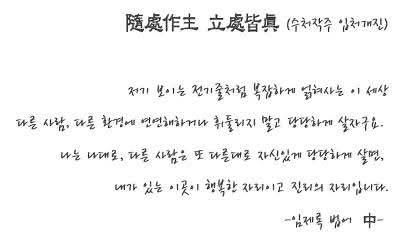 隨處作主 立處皆眞 (수처작주 입처개진)
저기 보이는 전기줄처럼 복잡하게 얽혀사는 이 세상
다른 사람, 다른 환경에 연연해하거나 휘둘리지 말고 당당하게 살자구요.
나는 나대로, 다른 사람은 또 다른대로 자신있게 당당하게 살면,
내가 있는 이곳이 행복한 자리이고 진리의 자리입니다.
-임제록 법어 中-